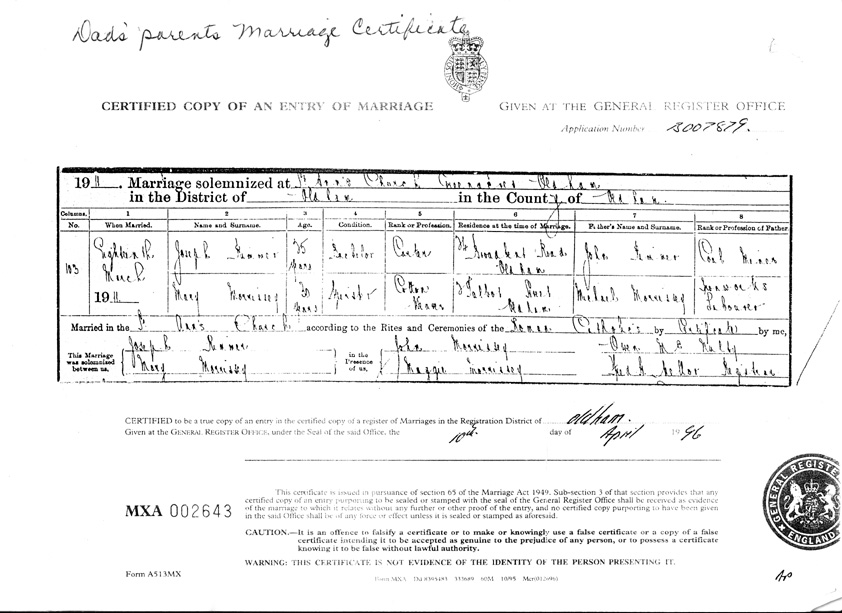 Dad's parents Marriage Certificate
CERTIFIED COPY OF AN ENTRY OF MARRIAGE
GIVEN AT THE GENERAL REGISTER OFFICE
Application Number B007879.
19 11. Marriage solemnized at St Ann's Church Oldham
in the District of Oldham in the County of Oldham
Columns. 1 2 3 4 5 6 7 8
No. When Married. Name and Surname. Age. Condition. Rank or Profession. Residence at the time of Marriage. Father's Name and Surname. Rank or Profession of Father
103 Eighteenth March 1911 Joseph 35 years Bachelor Carter Road Oldham John Coal Miner
Mary Morrissey 30 years Spinster Cotton 3 Talbot Street Oldham Michael Morrissey Ironworks Labourer
Married in the St Ann's Church according to the Rites and Ceremonies of the Roman Catholics by Certificate by me,
This Marriage was solemnized between us, Joseph
Mary Morrissey
in the Presence of us, John Morrissey
Maggie Morrissey
Owen Mc Nulty
Fred H Registrar
CERTIFIED to be a true copy of an entry in the certified copy of a register of Marriages in the Registration District of Oldham.
Given at the GENERAL REGISTER OFFICE, under the Seal of the said Office, the 10th. day of April 1996
MXA 002643
This certificate is issued in pursuance of section 65 of the Marriage Act 1949. Sub-section 3 of that section provides that any
certified copy of an entry purporting to be sealed or stamped with the seal of the General Register Office shall be received as evidence
of the marriage to which it relates without any further or other proof of the entry, and no certified copy purporting to have been given
in the said Office shall be of any force or effect unless it is sealed or stamped as aforesaid.
CAUTION.—It is an offence to falsify a certificate or to make or knowingly use a false certificate or a copy of a false
certificate intending it to be accepted as genuine to the prejudice of any person, or to possess a certificate
knowing it to be false without lawful authority.
WARNING: THIS CERTIFICATE IS NOT EVIDENCE OF THE IDENTITY OF THE PERSON PRESENTING IT.
Form A513MX
Form MXA
GENERAL REGISTER
ENGLAND